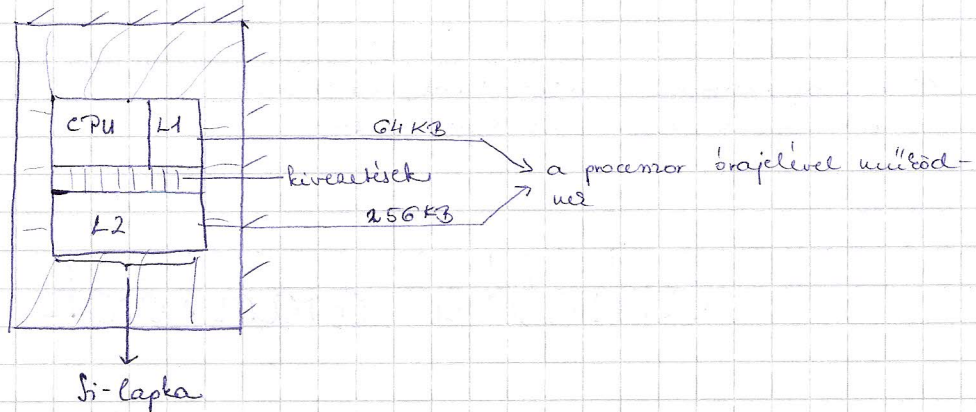 CPU L1
64 KB
kivezetések
a processzor órajelével működ-
nek
L2
256 KB
Si-lapka